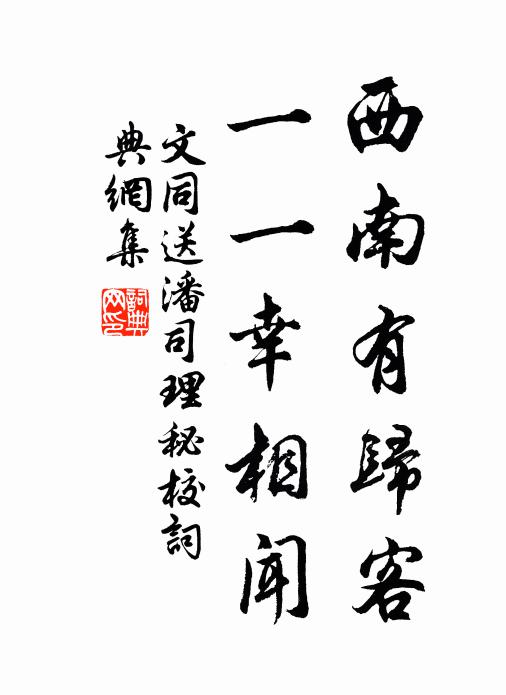 西南有歸客
一一幸相聞
文同送潘司理秘校詞
典網集
詞典網印